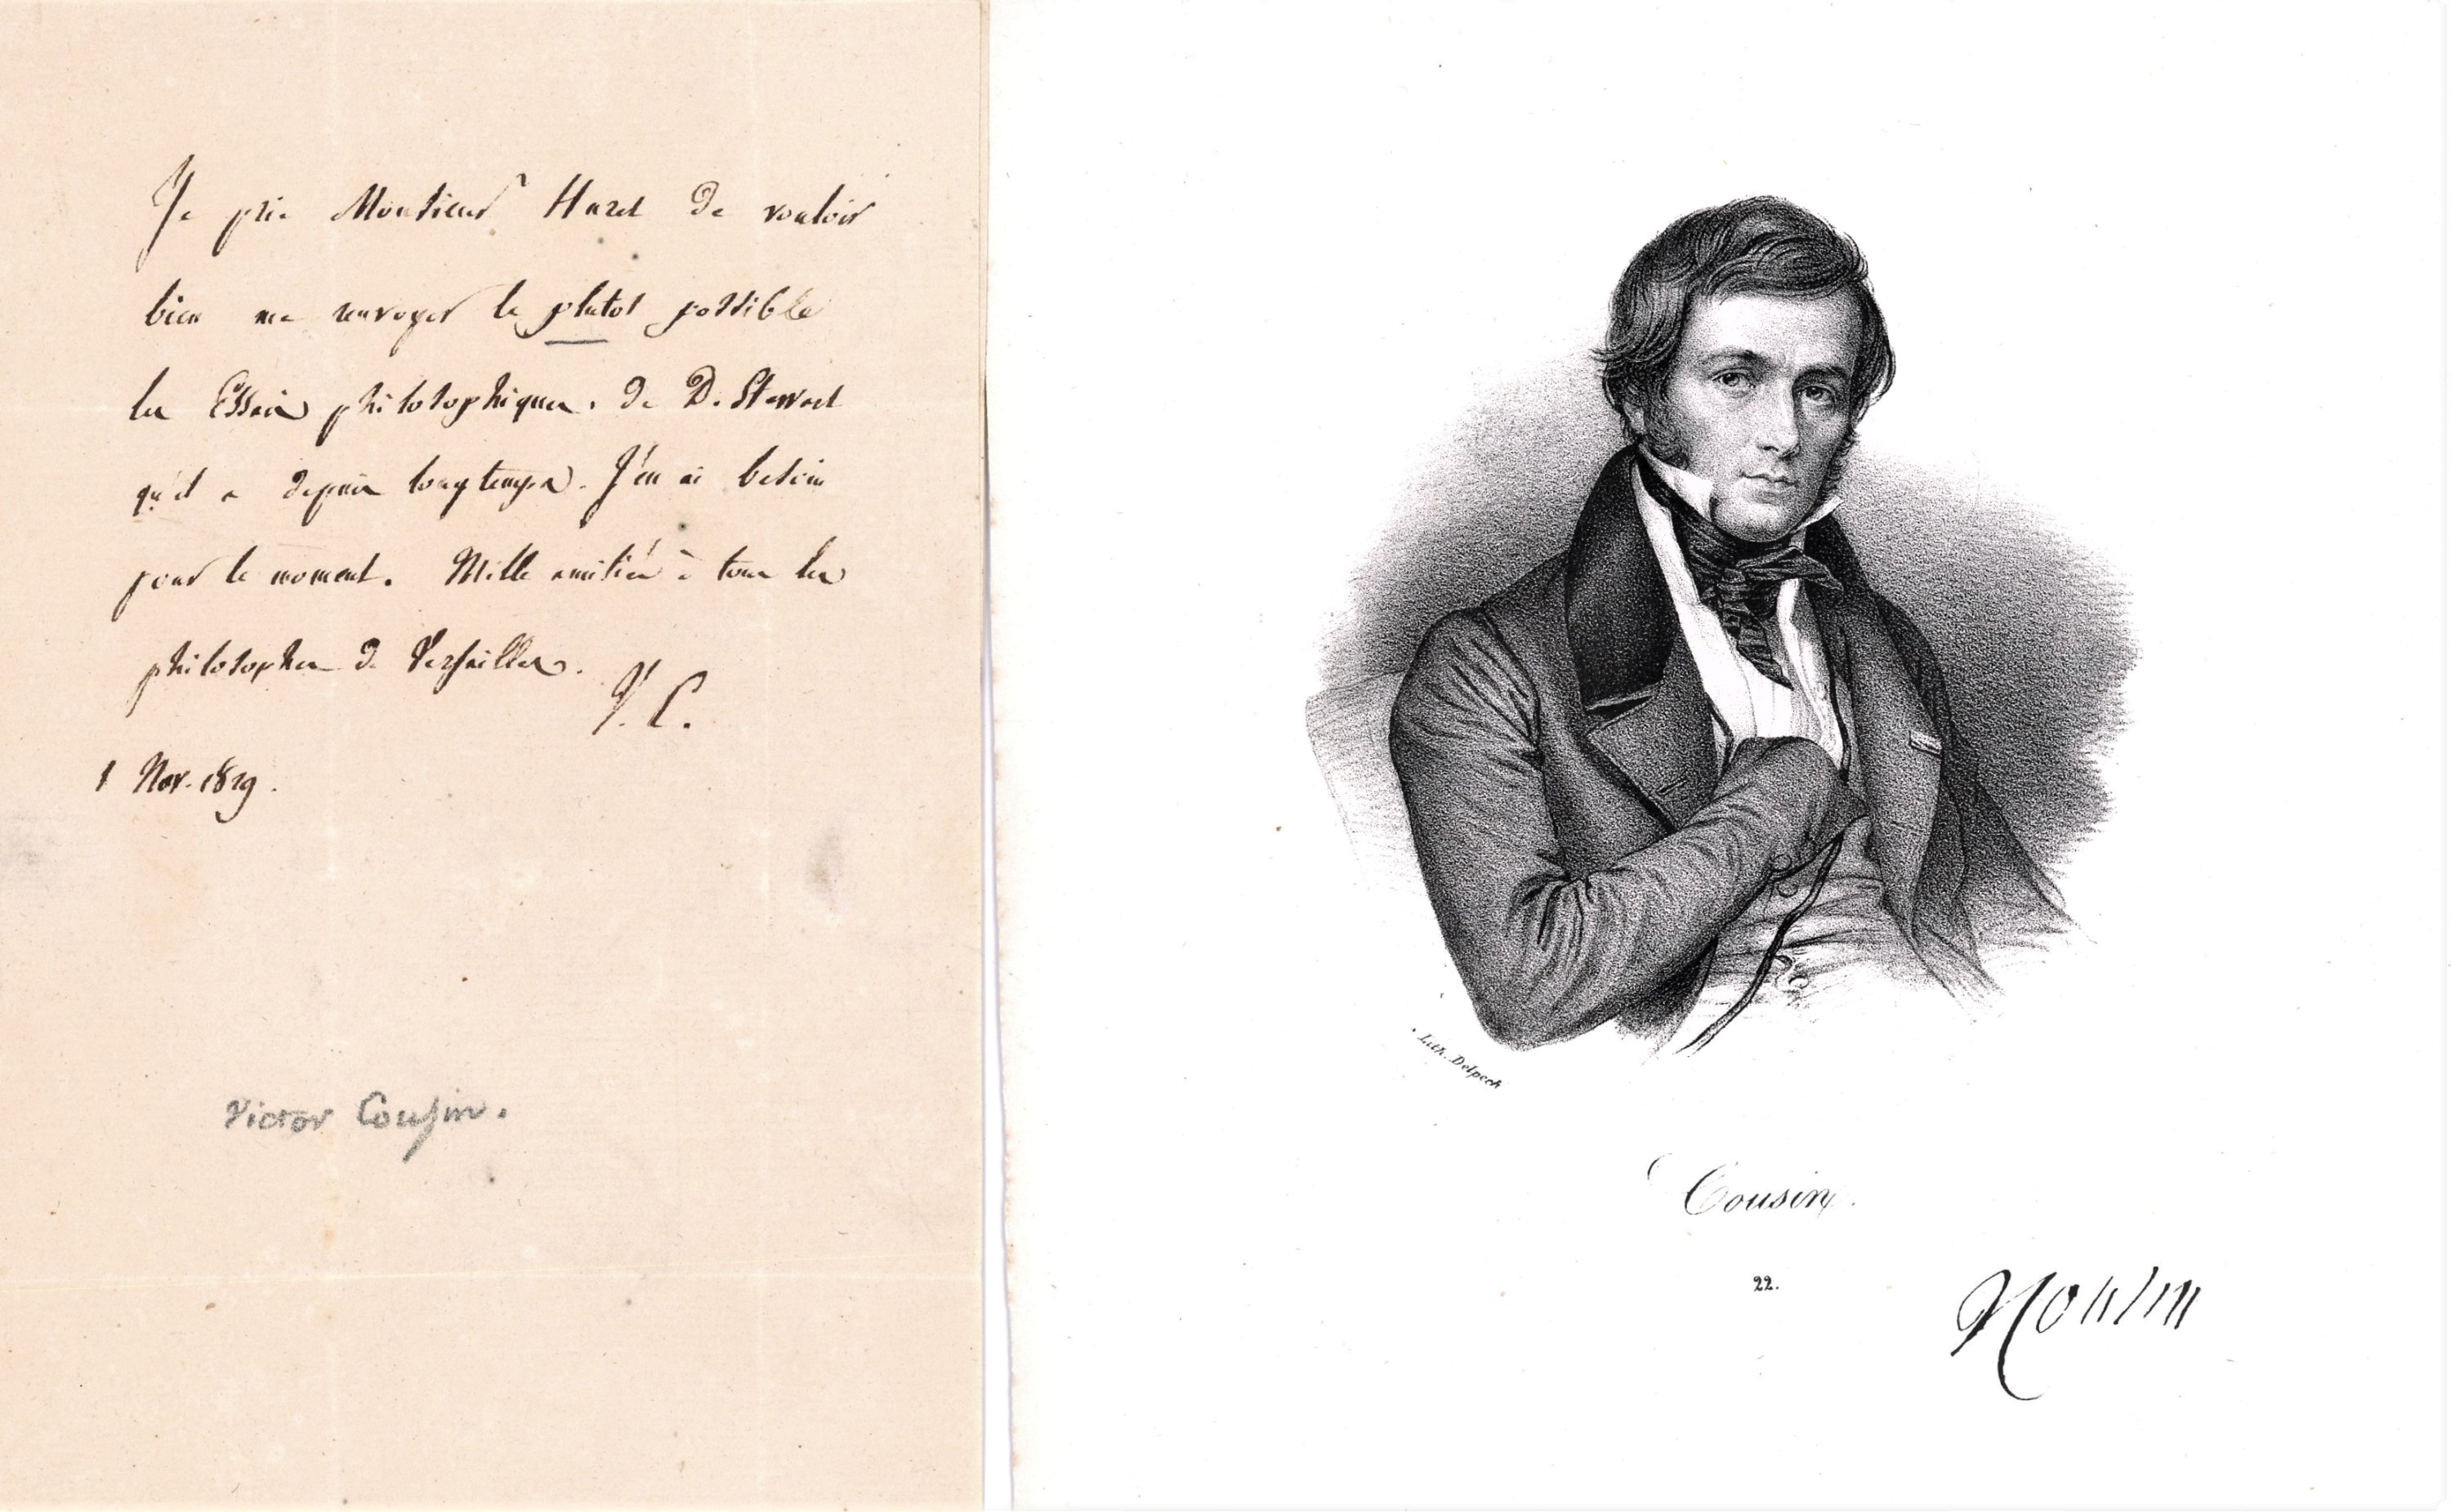 Je prie Monsieur Huzet de vouloir
bien me renvoyer le plutot possible
les Essais philosophiques de D. Stewart
qu'il a depuis longtemps. J'en ai besoin
pour le moment. Mille amitiés à tous les
philosophes de Versailles.
V. C.
1 Nov. 1819.
Victor Cousin.
Lith. Delpech
Cousin.
22.
VCousin